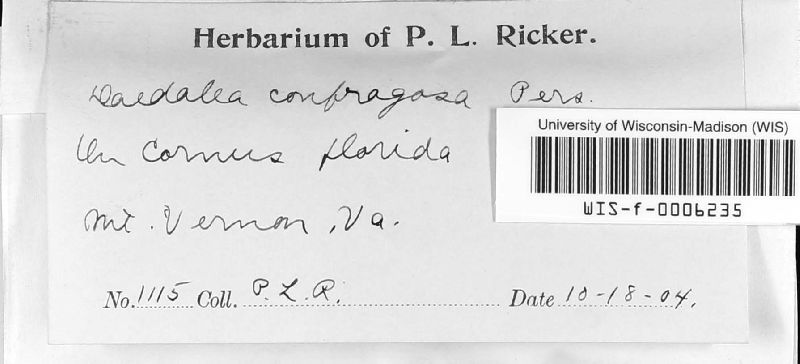 Herbarium of P. L. Ricker.
Daedalea confragosa Pers.
On Cornus florida
Mt. Vernon, Va.
No. 1115 Coll. P. L. R. Date 10-18-04.
University of Wisconsin-Madison (WIS)
WIS-f-0006235